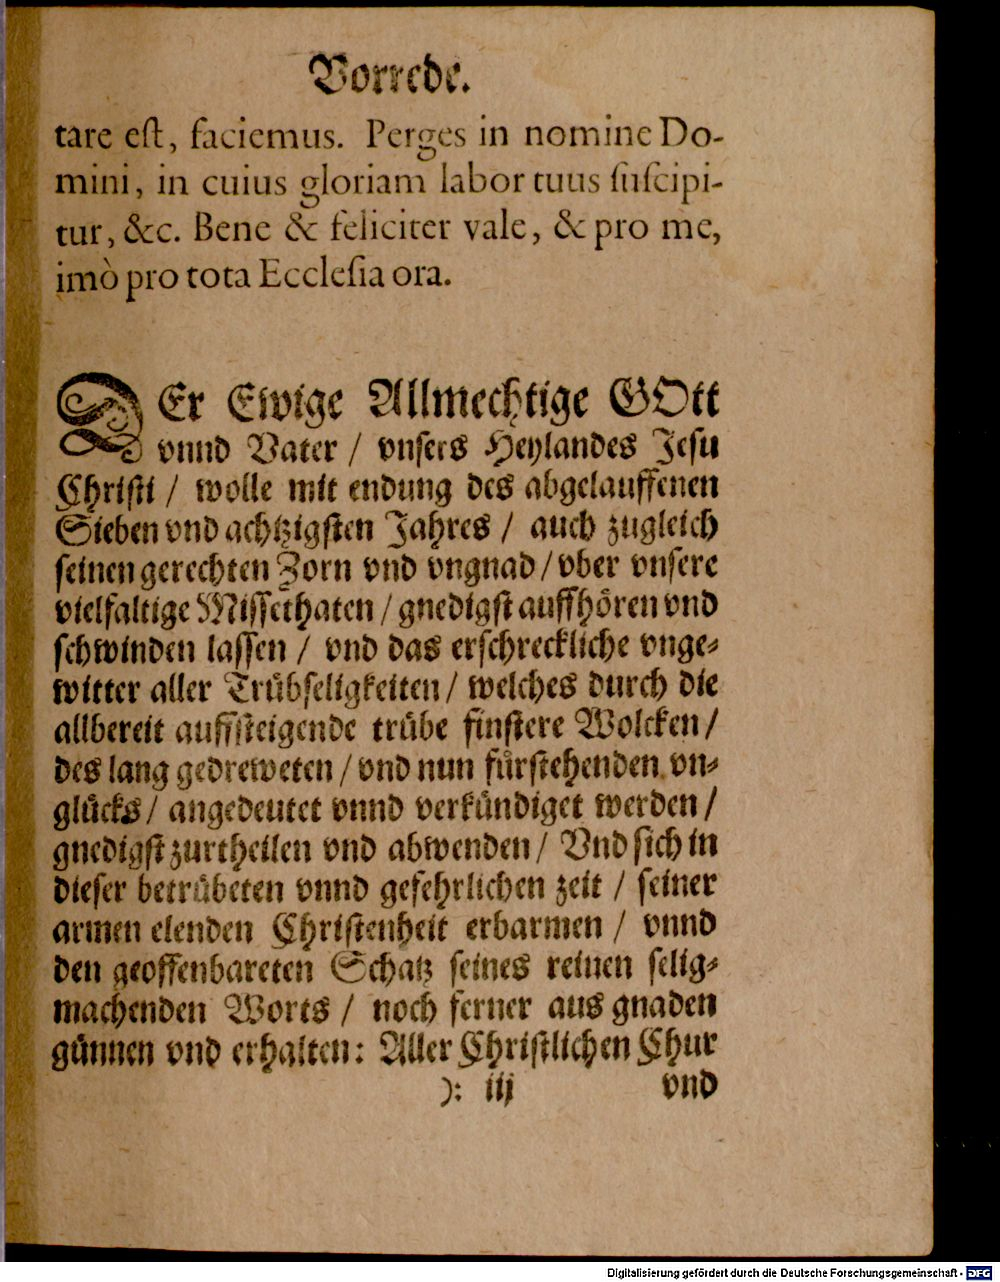 Vorrede.
tare est, faciemus. Perges in nomine Do-
mini, in cuius gloriam labor tuus suscipi-
tur, &c. Bene & feliciter vale, & pro me,
imò pro tota Ecclesia ora.
DEr Ewige Allmechtige GOtt
vnnd Vater / vnsers Heylandes Jesu
Christi / wolle mit endung des abgelauffenen
Sieben vnd achtzigsten Jahres / auch zugleich
seinen gerechten Zorn vnd vngnad / vber vnsere
vielfaltige Missethaten / gnedigst auffhören vnd
schwinden lassen / vnd das erschreckliche vnge-
witter aller Trübseligkeiten / welches durch die
allbereit auffsteigende trübe finstere Wolcken /
des lang gedreweten / vnd nun fürstehenden vn-
glücks / angedeutet vnnd verkündiget werden /
gnedigst zurtheilen vnd abwenden / Vnd sich in
dieser betrübeten vnnd gefehrlichen zeit / seiner
armen elenden Christenheit erbarmen / vnnd
den geoffenbareten Schatz seines reinen selig-
machenden Worts / noch ferner aus gnaden
günnen vnd erhalten: Aller Christlichen Chur
): iij vnd
Digitalisierung gefördert durch die Deutsche Forschungsgemeinschaft - DFG